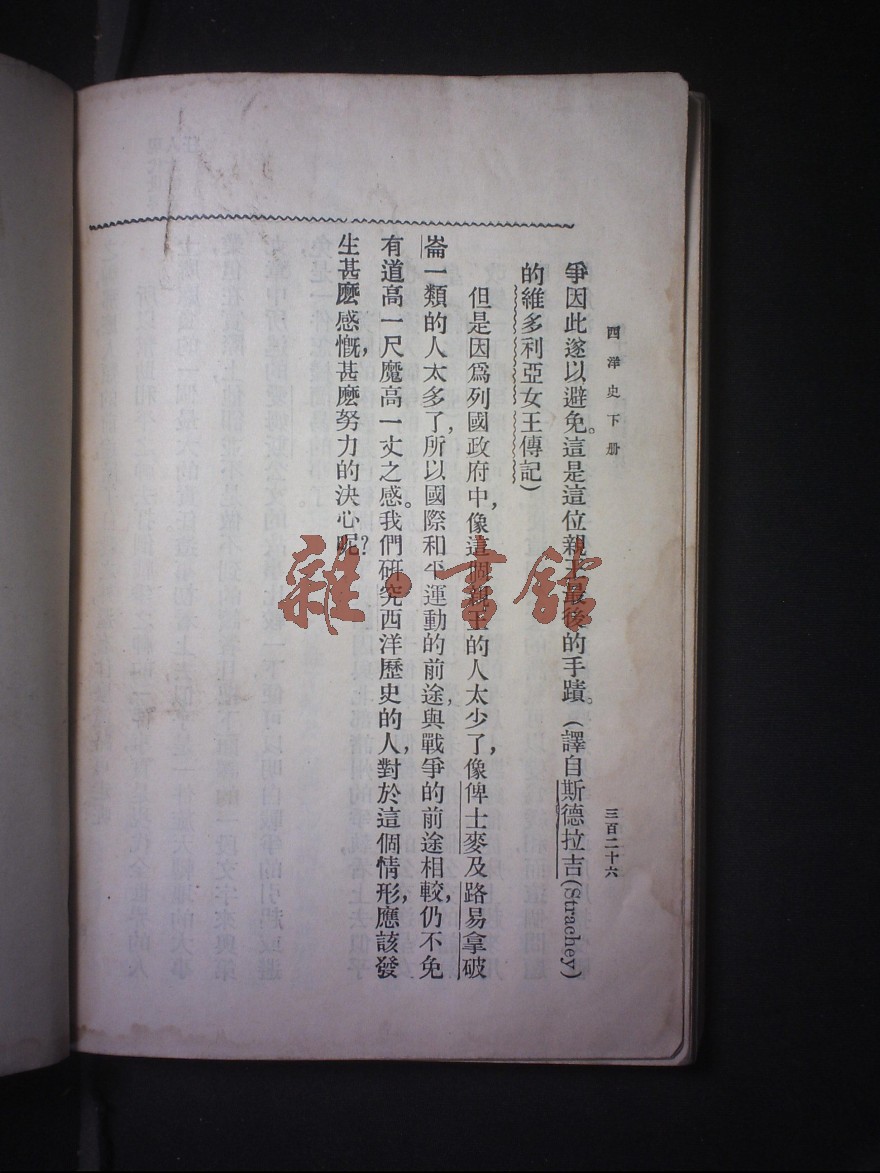 西洋史下册
三百二十六
爭因此遂以避免。這是這位親王最後的手蹟。(譯自斯德拉吉(Strachey)
的維多利亞女王傳記)
但是因爲列國政府中，像這個親王的人太少了，像俾士麥及路易拿破
崙一類的人太多了，所以國際和平運動的前途與戰爭的前途相較，仍不免
有道高一尺魔高一丈之感。我們研究西洋歷史的人，對於這個情形，應該發
生甚麽感慨，甚麽努力的決心呢？
雜·書館